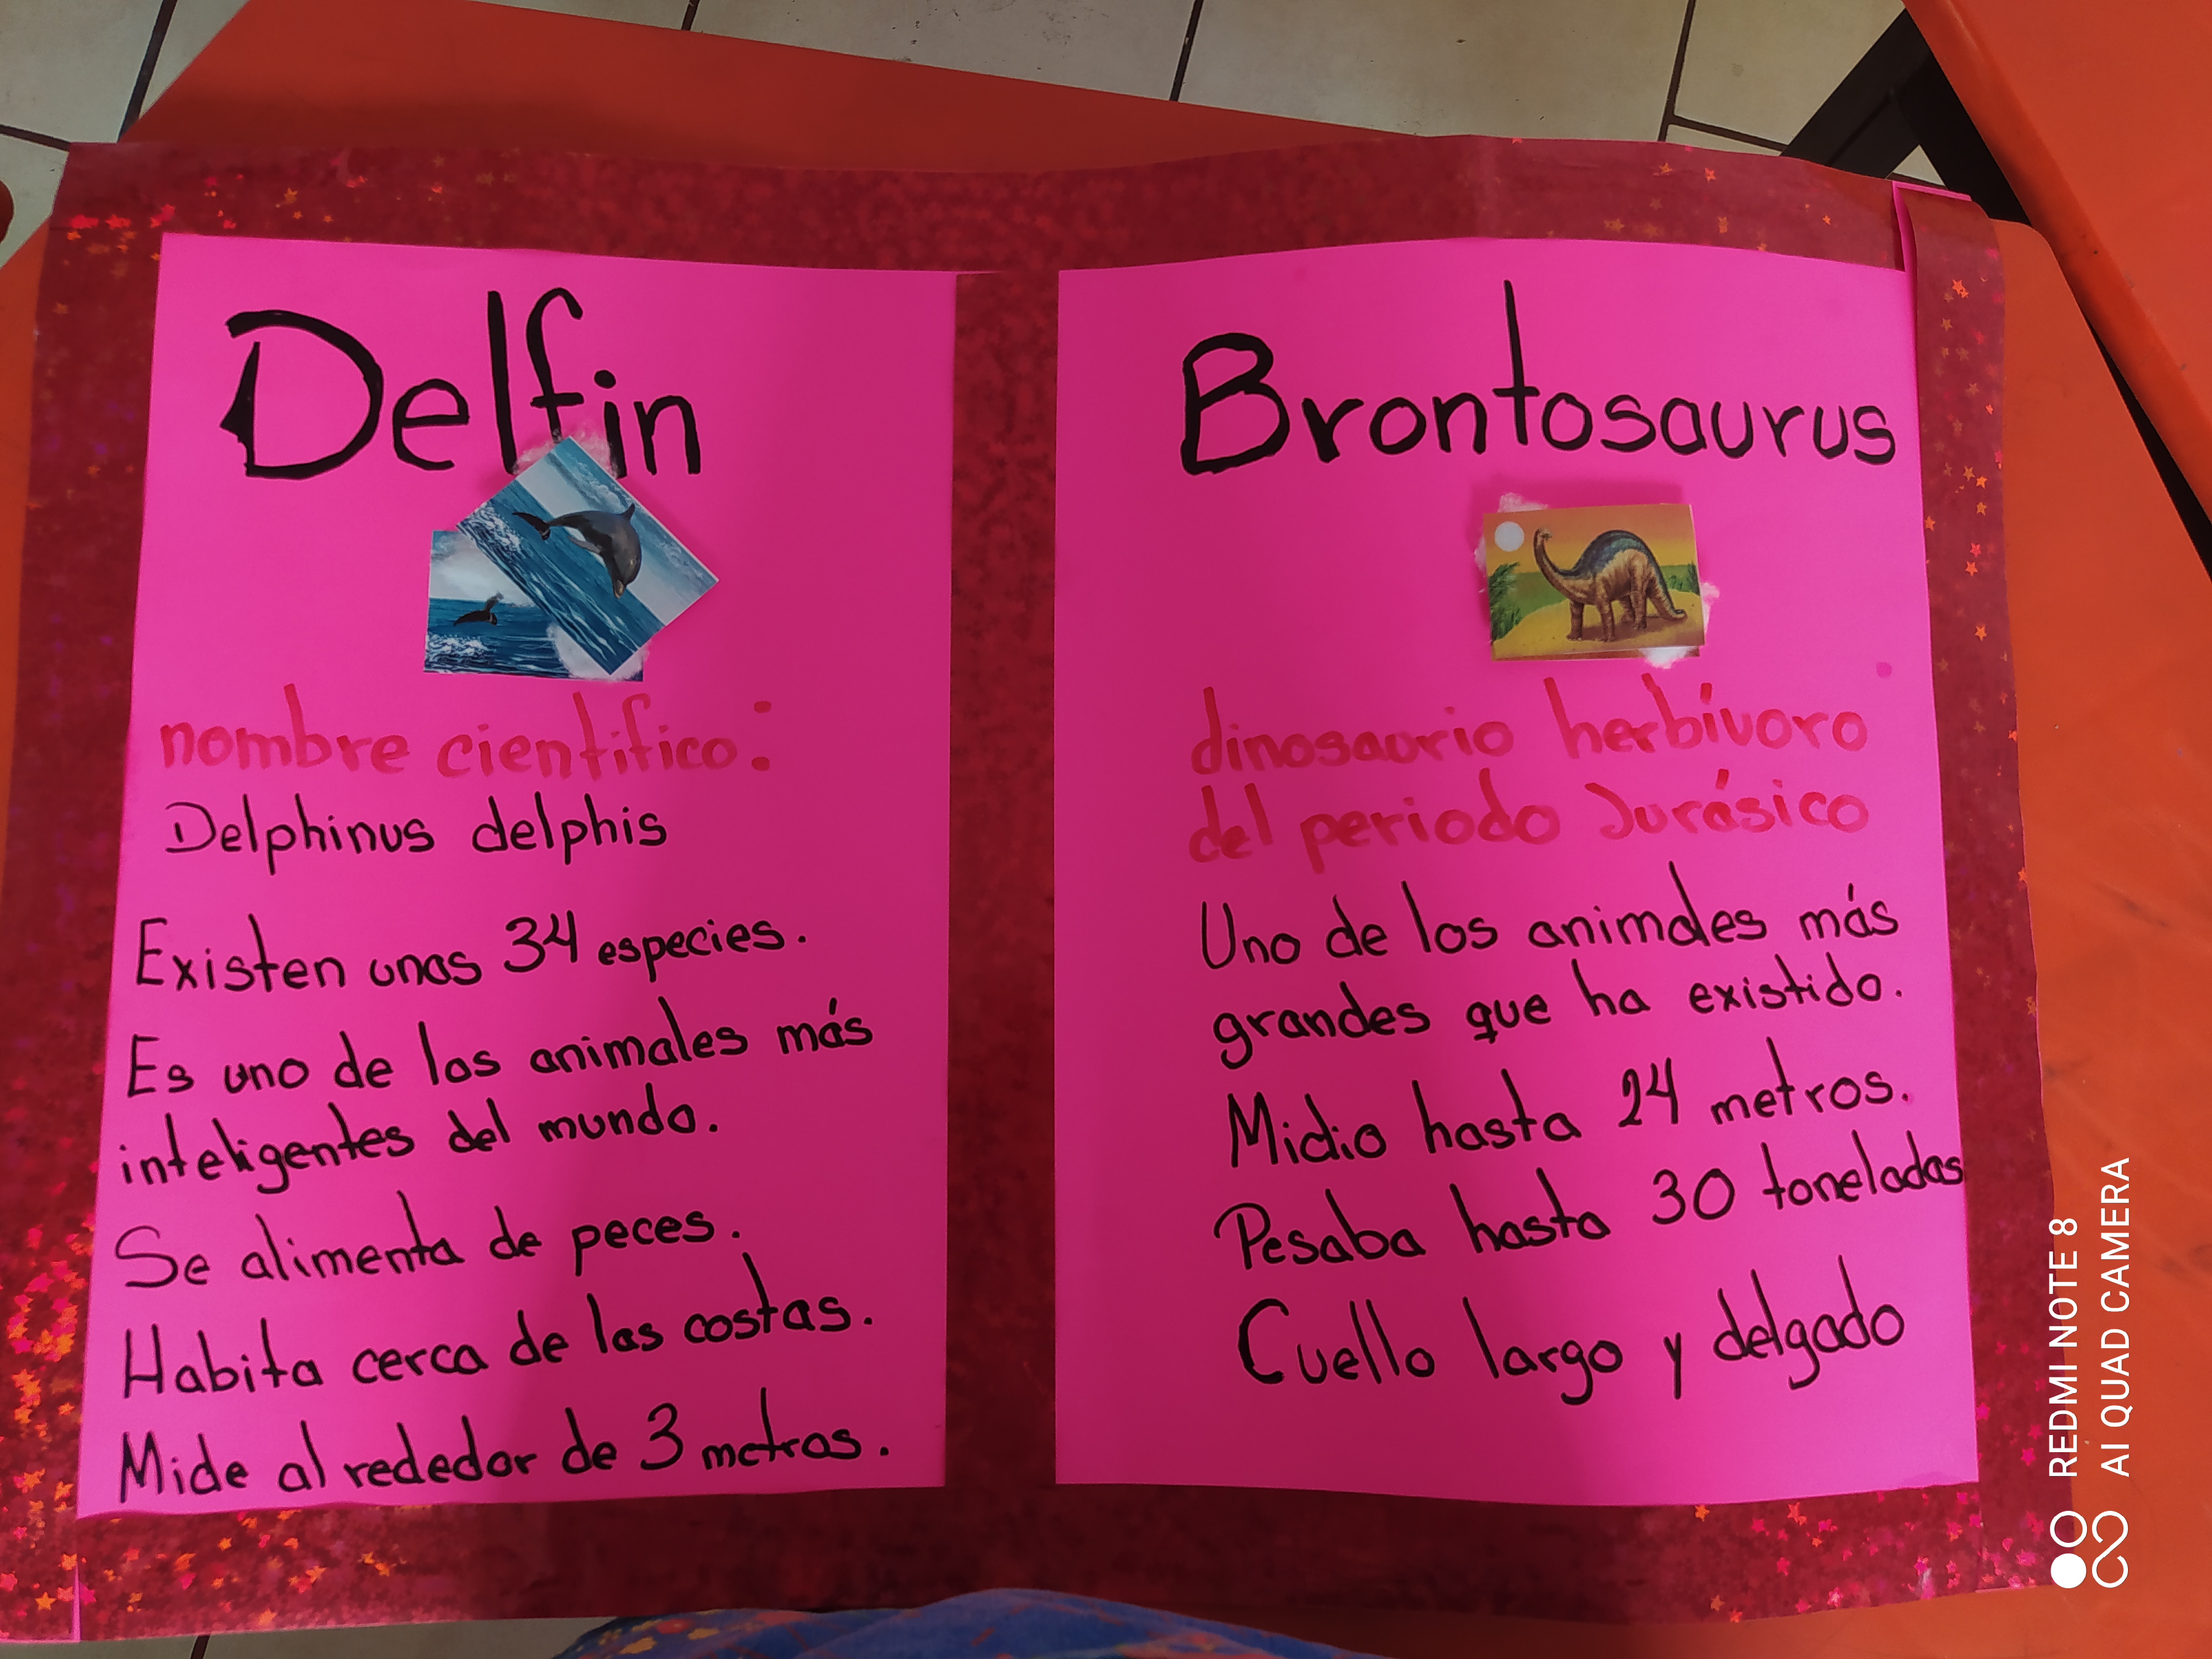 Delfin
nombre cientifico:
Delphinus delphis
Existen unas 34 especies.
Es uno de los animales más
inteligentes del mundo.
Se alimenta de peces.
Habita cerca de las costas.
Mide al rededor de 3 metros.
Brontosaurus
dinosaurio herbívoro
del periodo Jurásico
Uno de los animales más
grandes que ha existido.
Midio hasta 24 metros.
Pesaba hasta 30 toneladas
Cuello largo y delgado
REDMI NOTE 8
AI QUAD CAMERA